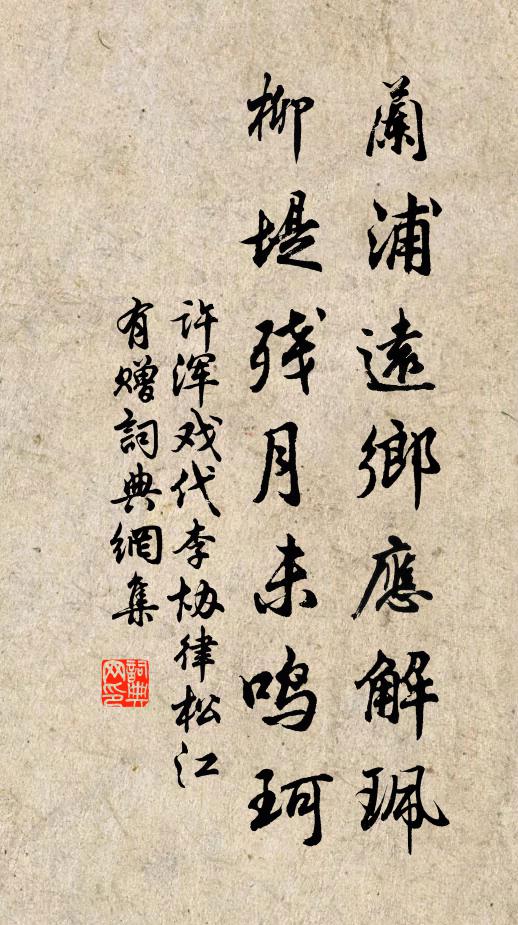 蘭浦遠鄉應解珮
柳堤残月未鸣珂
许浑戏代李协律松江
有赠詞典網集
詞典网印